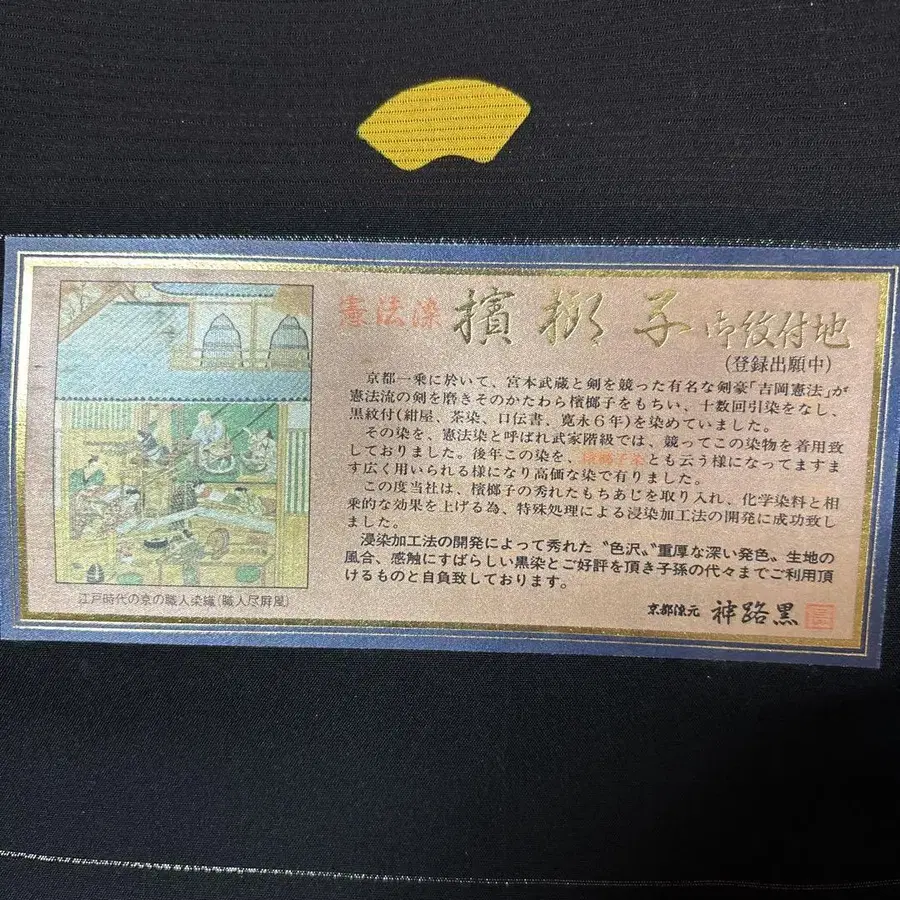 憲法染 檳榔子 御紋付地
(登録出願中)
京都一乗に於いて、宮本武蔵と剣を競った有名な剣豪「吉岡憲法」が
憲法流の剣を磨きそのかたわら檳榔子をもちい、十数回引染をなし、
黒紋付(紺屋、茶染、口伝書、寛永6年)を染めていました。
その染を、憲法染と呼ばれ武家階級では、競ってこの染物を着用致
しておりました。後年この染を、檳榔子染とも云う様になってますま
す広く用いられる様になり高価な染で有りました。
この度当社は、檳榔子の秀れたもちあじを取り入れ、化学染料と相
乗的な効果を上げる為、特殊処理による浸染加工法の開発に成功致し
ました。
浸染加工法の開発によって秀れた〝色沢〟〝重厚な深い発色〟生地の
風合、感触にすばらしい黒染とご好評を頂き子孫の代々までご利用頂
けるものと自負致しております。
京都染元 神路黒
江戸時代の京の職人染織(職人尽屏風)